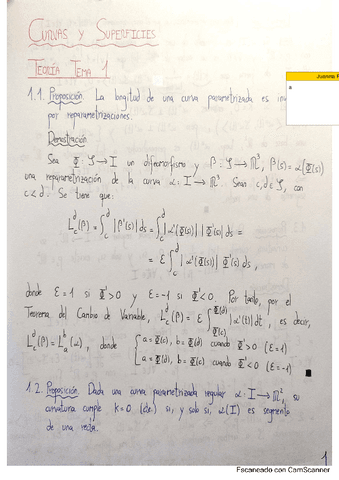 CURVAS Y SUPERFICIES
TEORÍA TEMA 1
1.1. Proposición. La longitud de una curva parametrizada es in
por reparametrizaciones.
Demostración
Sea Φ: J → I un difeomorfismo y β: J → ℝ³, β(s) = α(Φ(s))
una reparametrización de la curva α: I → ℝ³. Sean c,d ∈ J, con
c < d. Se tiene que:
L_c^d(β) = ∫_c^d |β'(s)| ds = ∫_c^d |α'(Φ(s))| |Φ'(s)| ds =
= ε ∫_c^d |α'(Φ(s))| Φ'(s) ds ,
donde ε = 1 si Φ' > 0 y ε = -1 si Φ' < 0. Por tanto, por el
Teorema del Cambio de Variable, L_c^d(β) = ε ∫_{Φ(c)}^{Φ(d)} |α'(t)| dt , es decir,
L_c^d(β) = L_a^b(α), donde { a = Φ(c), b = Φ(d) cuando Φ' > 0 (ε = 1)
a = Φ(d), b = Φ(c) cuando Φ' < 0 (ε = -1)
1.2. Proposición. Dada una curva parametrizada regular α: I → ℝ², su
curvatura cumple k = 0 (cte.) si, y sólo si, α(I) es segmento
de una recta.
1
Juanma
a
Escaneado con CamScanner